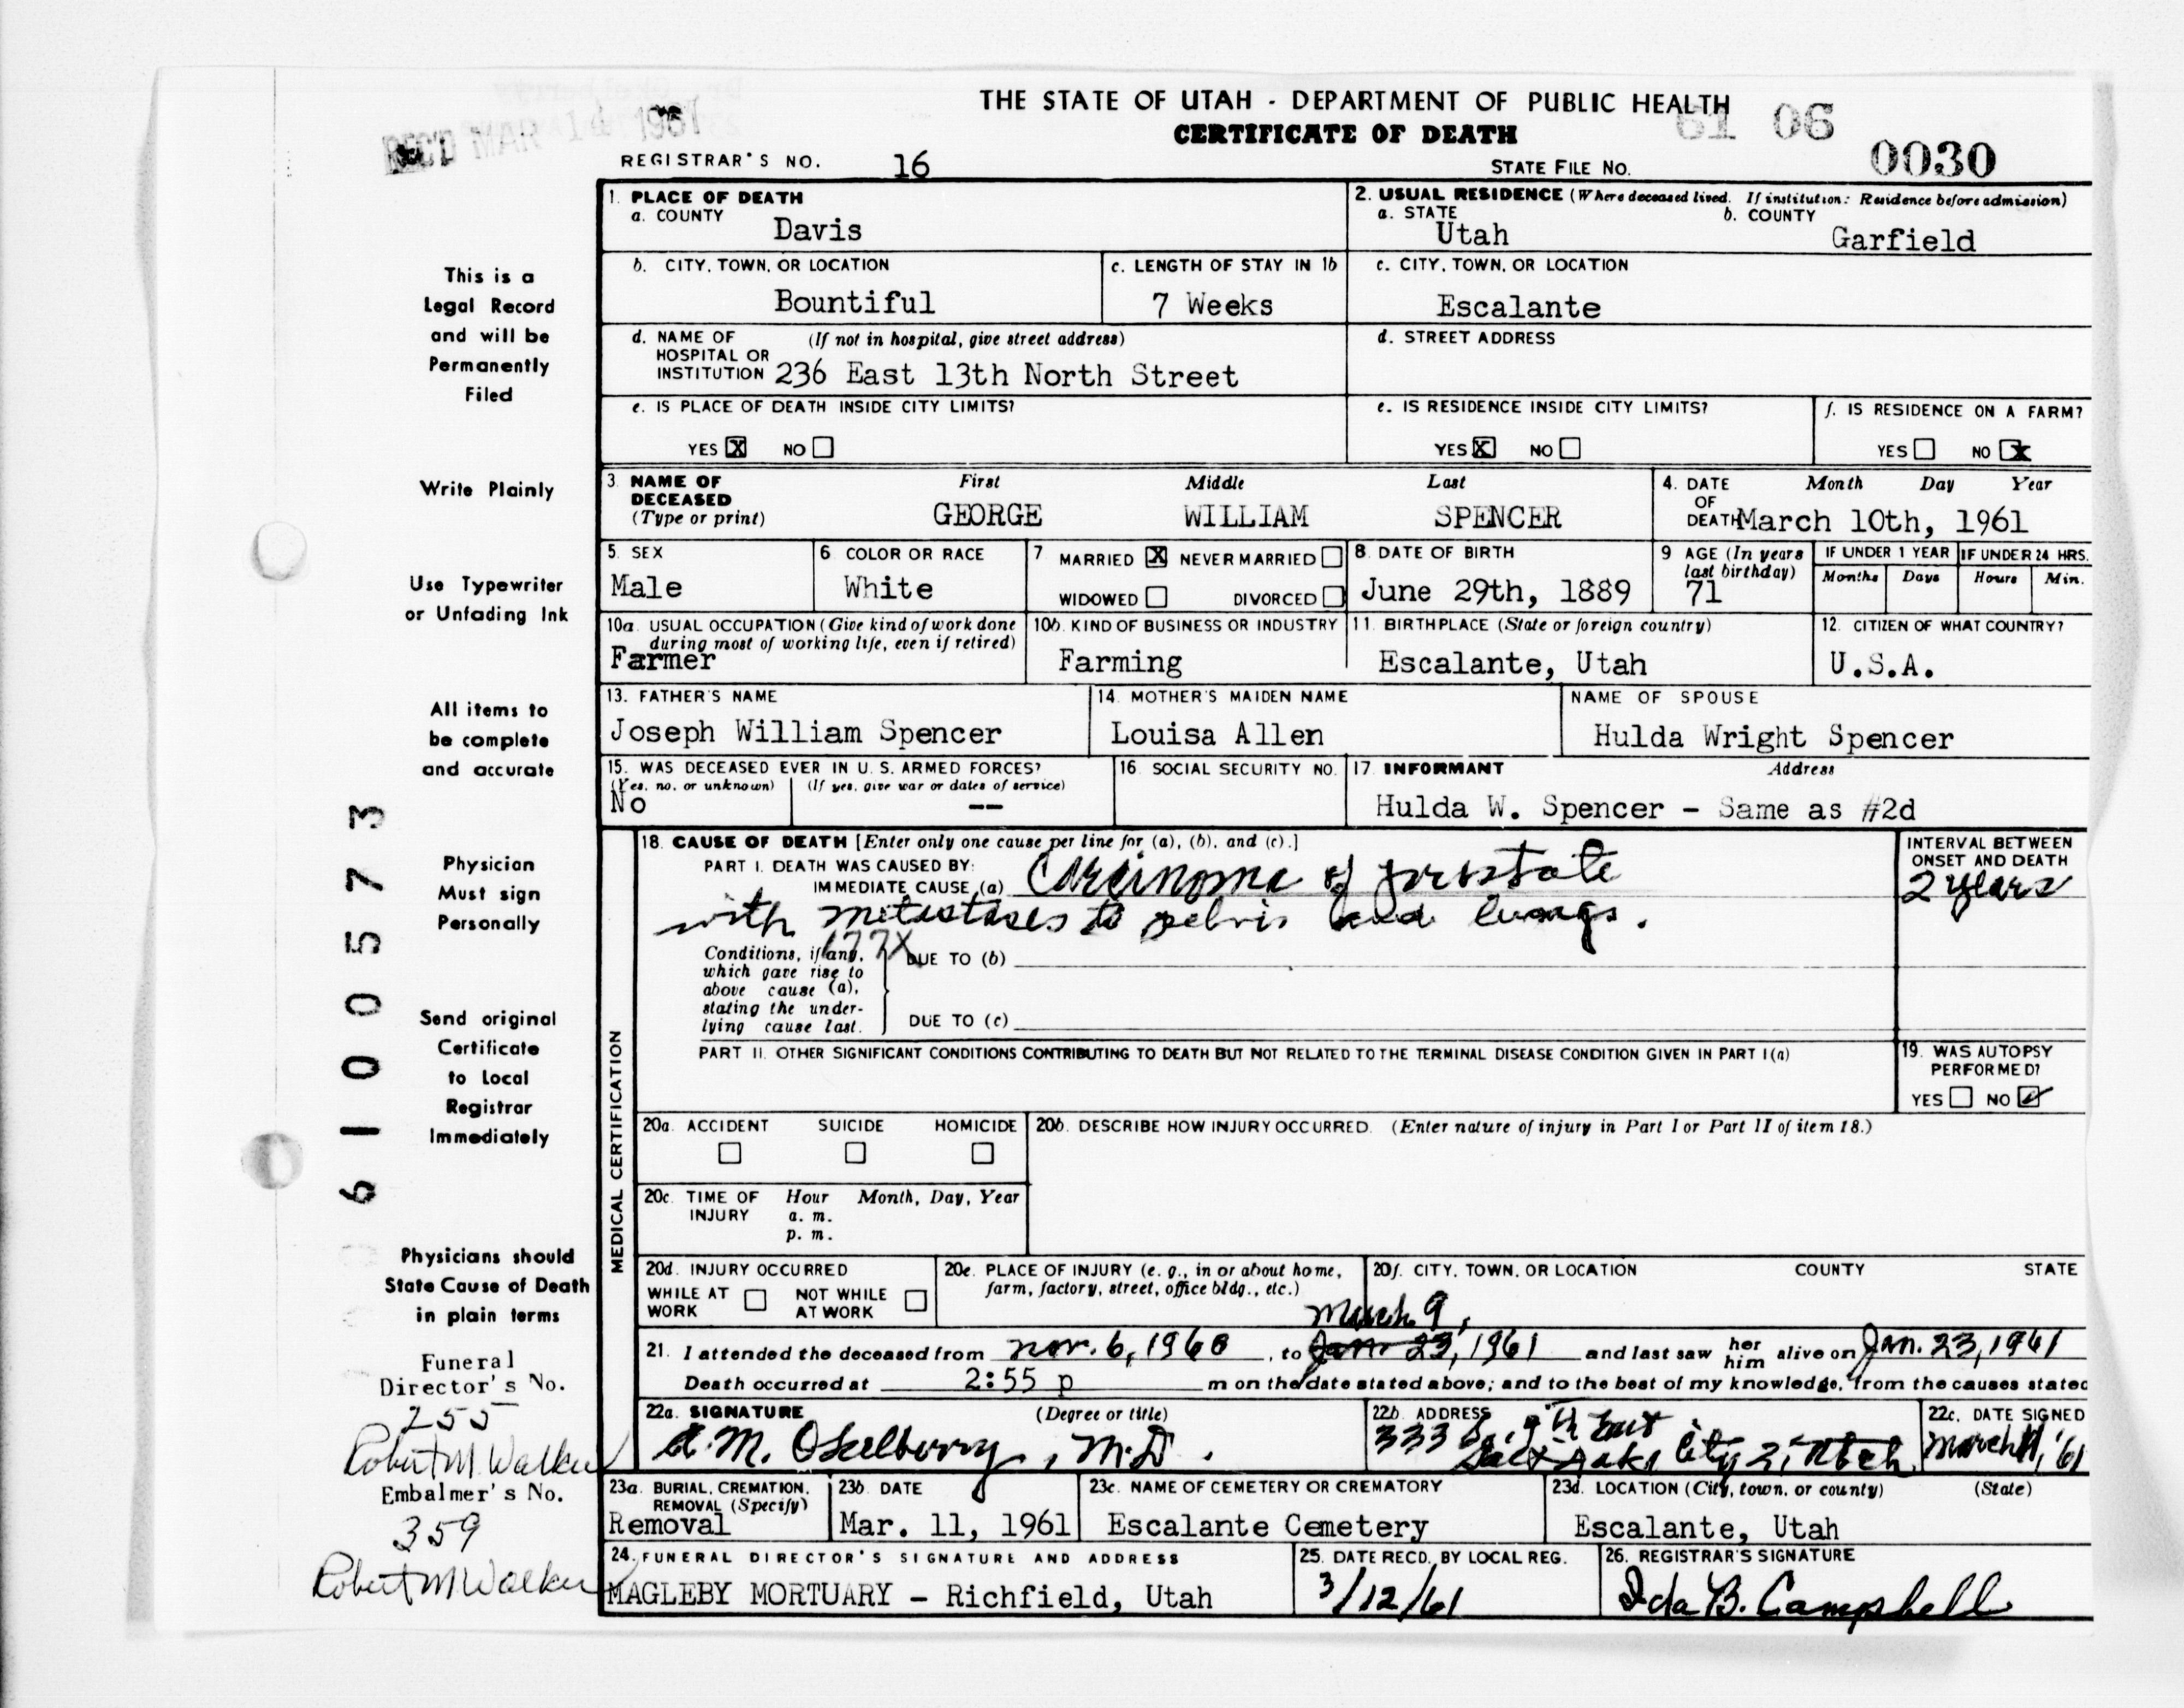 REC'D MAR 14 1961
THE STATE OF UTAH - DEPARTMENT OF PUBLIC HEALTH
61 06
CERTIFICATE OF DEATH
REGISTRAR'S NO. 16
STATE FILE NO. 0030
1. PLACE OF DEATH
a. COUNTY Davis
2. USUAL RESIDENCE (Where deceased lived. If institution: Residence before admission)
a. STATE Utah b. COUNTY Garfield
b. CITY, TOWN, OR LOCATION Bountiful
c. LENGTH OF STAY IN 1b 7 Weeks
c. CITY, TOWN, OR LOCATION Escalante
d. NAME OF HOSPITAL OR INSTITUTION (If not in hospital, give street address) 236 East 13th North Street
d. STREET ADDRESS
e. IS PLACE OF DEATH INSIDE CITY LIMITS?
YES X NO
e. IS RESIDENCE INSIDE CITY LIMITS?
YES X NO
f. IS RESIDENCE ON A FARM?
YES NO X
3. NAME OF DECEASED (Type or print) First Middle Last
GEORGE WILLIAM SPENCER
4. DATE OF DEATH Month Day Year
March 10th, 1961
5. SEX Male
6. COLOR OR RACE White
7. MARRIED X NEVER MARRIED
WIDOWED DIVORCED
8. DATE OF BIRTH June 29th, 1889
9 AGE (In years last birthday) 71
IF UNDER 1 YEAR Months Days
IF UNDER 24 HRS. Hours Min.
10a. USUAL OCCUPATION (Give kind of work done during most of working life, even if retired)
Farmer
10b. KIND OF BUSINESS OR INDUSTRY
Farming
11. BIRTHPLACE (State or foreign country)
Escalante, Utah
12. CITIZEN OF WHAT COUNTRY?
U.S.A.
13. FATHER'S NAME
Joseph William Spencer
14. MOTHER'S MAIDEN NAME
Louisa Allen
NAME OF SPOUSE
Hulda Wright Spencer
15. WAS DECEASED EVER IN U. S. ARMED FORCES?
(Yes, no, or unknown) (If yes, give war or dates of service)
No --
16. SOCIAL SECURITY NO.
17. INFORMANT Address
Hulda W. Spencer - Same as #2d
MEDICAL CERTIFICATION
18. CAUSE OF DEATH [Enter only one cause per line for (a), (b), and (c).]
PART I. DEATH WAS CAUSED BY:
IMMEDIATE CAUSE (a) Carcinoma of prostate
with metastases to pelvis and lungs.
INTERVAL BETWEEN ONSET AND DEATH
2 years
177X
Conditions, if any, which gave rise to above cause (a), stating the underlying cause last.
DUE TO (b)
DUE TO (c)
PART II. OTHER SIGNIFICANT CONDITIONS CONTRIBUTING TO DEATH BUT NOT RELATED TO THE TERMINAL DISEASE CONDITION GIVEN IN PART I(a)
19. WAS AUTOPSY PERFORMED?
YES NO ✓
20a. ACCIDENT SUICIDE HOMICIDE
20b. DESCRIBE HOW INJURY OCCURRED. (Enter nature of injury in Part I or Part II of item 18.)
20c. TIME OF INJURY Hour Month, Day, Year
a. m.
p. m.
20d. INJURY OCCURRED
WHILE AT WORK NOT WHILE AT WORK
20e. PLACE OF INJURY (e. g., in or about home, farm, factory, street, office bldg., etc.)
20f. CITY, TOWN, OR LOCATION COUNTY STATE
March 9,
21. I attended the deceased from Nov. 6, 1960, to Jan 23, 1961 and last saw her him alive on Jan. 23, 1961
Death occurred at 2:55 p m on the date stated above; and to the best of my knowledge, from the causes stated
22a. SIGNATURE (Degree or title)
M. Okelberry, M.D.
22b. ADDRESS
333 So. 9th East
Salt Lake City 2, Utah
22c. DATE SIGNED
March 11, '61
23a. BURIAL, CREMATION, REMOVAL (Specify)
Removal
23b. DATE
Mar. 11, 1961
23c. NAME OF CEMETERY OR CREMATORY
Escalante Cemetery
23d. LOCATION (City, town, or county) (State)
Escalante, Utah
24. FUNERAL DIRECTOR'S SIGNATURE AND ADDRESS
MAGLEBY MORTUARY - Richfield, Utah
25. DATE RECD. BY LOCAL REG.
3/12/61
26. REGISTRAR'S SIGNATURE
Ida B. Campbell
This is a
Legal Record
and will be
Permanently
Filed
Write Plainly
Use Typewriter
or Unfading Ink
All items to
be complete
and accurate
Physician
Must sign
Personally
Send original
Certificate
to Local
Registrar
Immediately
Physicians should
State Cause of Death
in plain terms
Funeral
Director's No.
255
Robert M Walker
Embalmer's No.
359
Robert M Walker
6100573